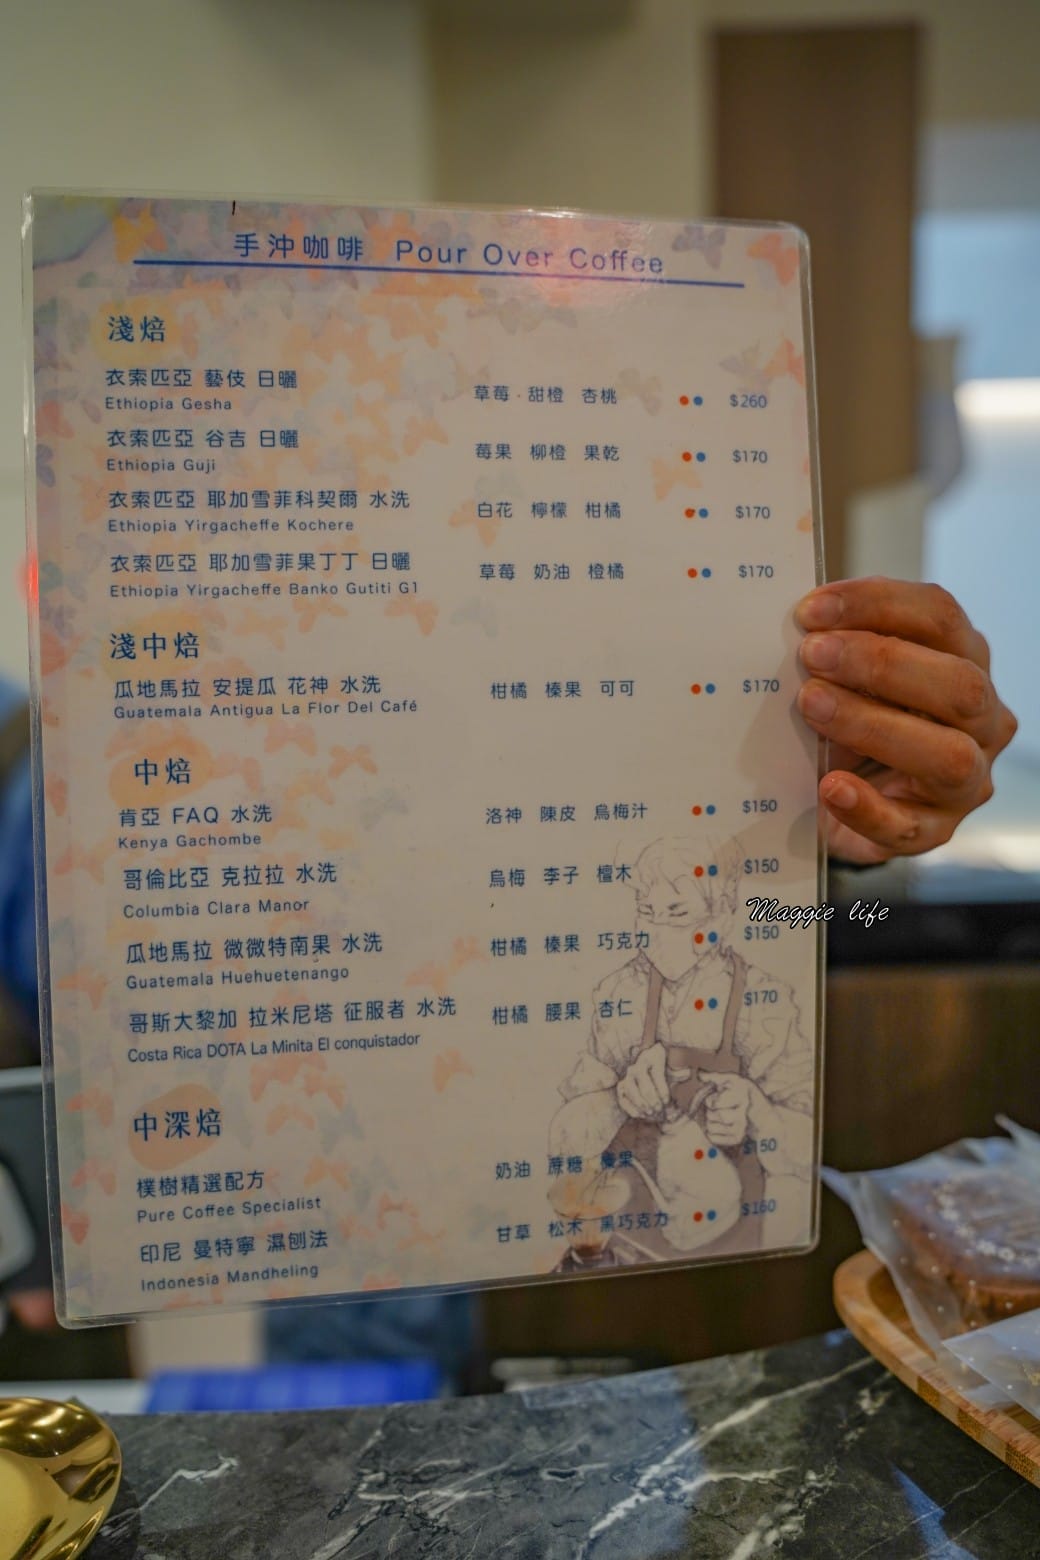 手沖咖啡 Pour Over Coffee
淺焙
衣索匹亞 藝伎 日曬 草莓·甜橙 杏桃 $260
Ethiopia Gesha
衣索匹亞 谷吉 日曬 莓果 柳橙 果乾 $170
Ethiopia Guji
衣索匹亞 耶加雪菲科契爾 水洗 白花 檸檬 柑橘 $170
Ethiopia Yirgacheffe Kochere
衣索匹亞 耶加雪菲果丁丁 日曬 草莓 奶油 橙橘 $170
Ethiopia Yirgacheffe Banko Gutiti G1
淺中焙
瓜地馬拉 安提瓜 花神 水洗 柑橘 榛果 可可 $170
Guatemala Antigua La Flor Del Café
中焙
肯亞 FAQ 水洗 洛神 陳皮 烏梅汁 $150
Kenya Gachombe
哥倫比亞 克拉拉 水洗 烏梅 李子 檀木 $150
Columbia Clara Manor
Maggie life
瓜地馬拉 微微特南果 水洗 柑橘 榛果 巧克力 $150
Guatemala Huehuetenango
哥斯大黎加 拉米尼塔 征服者 水洗 柑橘 腰果 杏仁 $170
Costa Rica DOTA La Minita El conquistador
中深焙
樸樹精選配方 奶油 蔗糖 $150
Pure Coffee Specialist
印尼 曼特寧 濕刨法 甘草 松木 黑巧克力 $160
Indonesia Mandheling